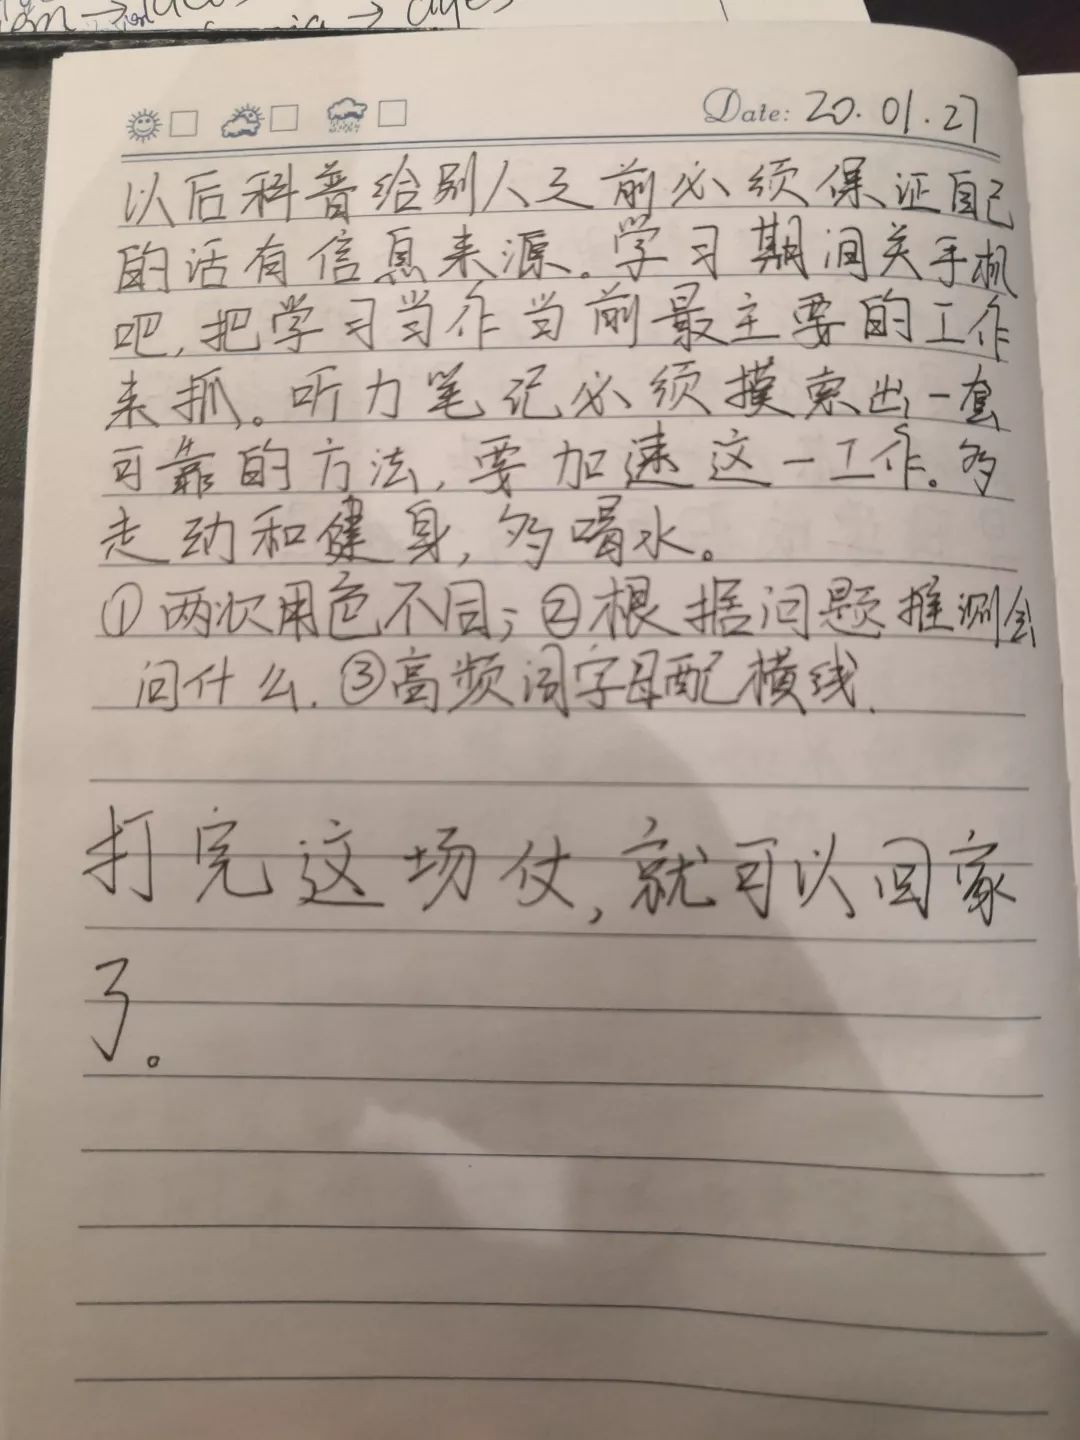 Date: 20.01.27
以后科普给别人之前必须保证自己
的话有信息来源。学习期间关手机
吧,把学习当作当前最主要的工作
来抓。听力笔记必须摸索出一套
可靠的方法,要加速这一工作。多
走动和健身,多喝水。
①两次用色不同;②根据问题推测会
问什么.③高频词字母配横线.
打完这场仗,就可以回家
了。